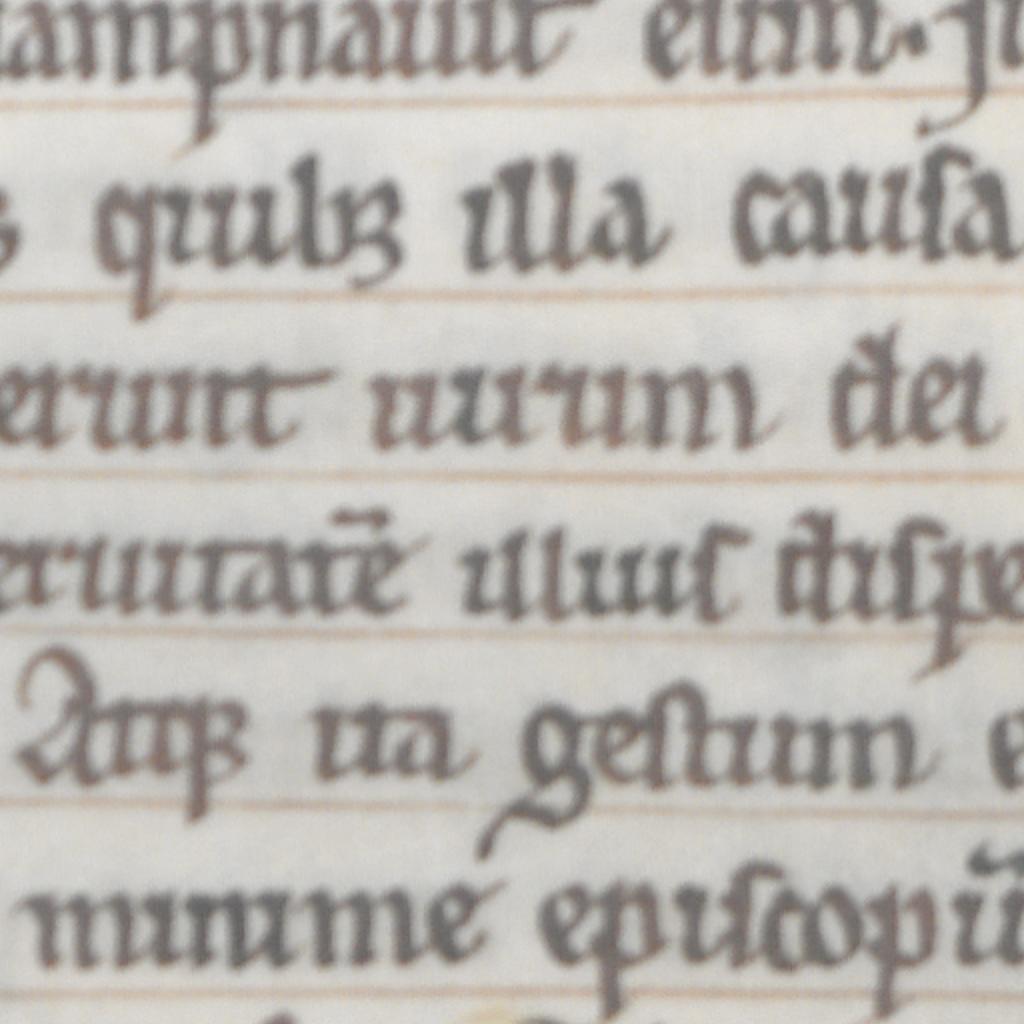 ampnauit eum. Iu
quibꝫ illa causa
erunt uirum dei
eruitatē illius dispe
Atqꝫ ita gestum e
minime episcopū